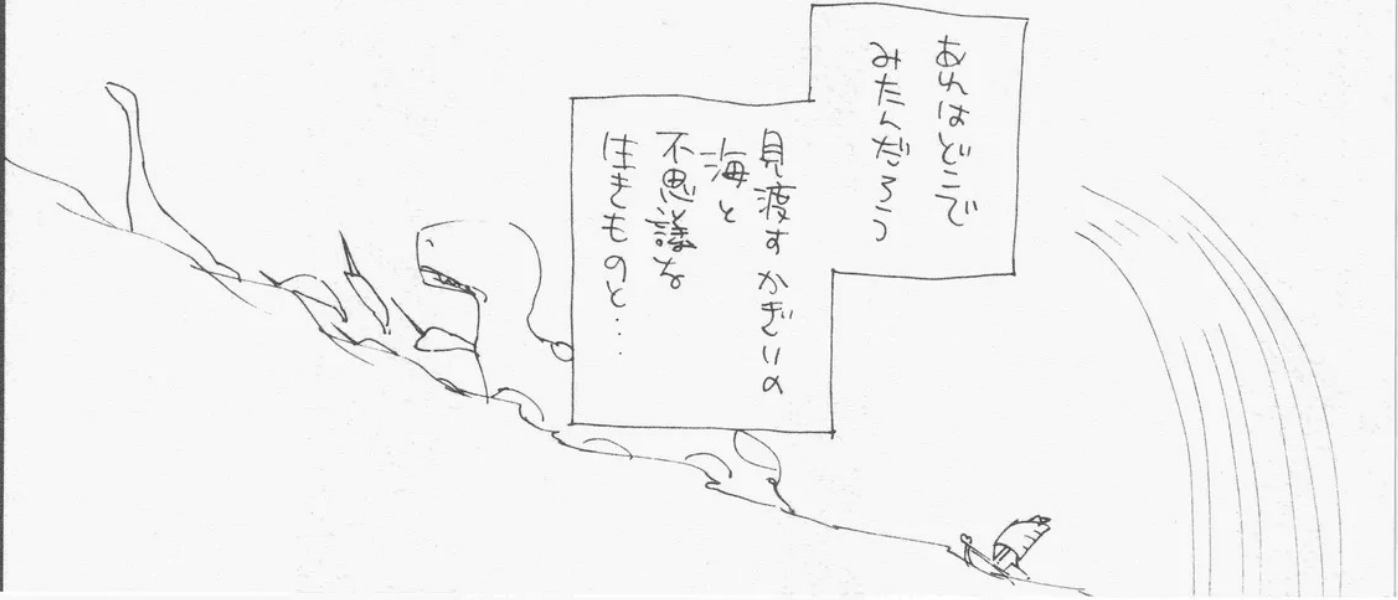 あれはどこで
みたんだろう
見渡すかぎりの
海と
不思議な
生きものと…